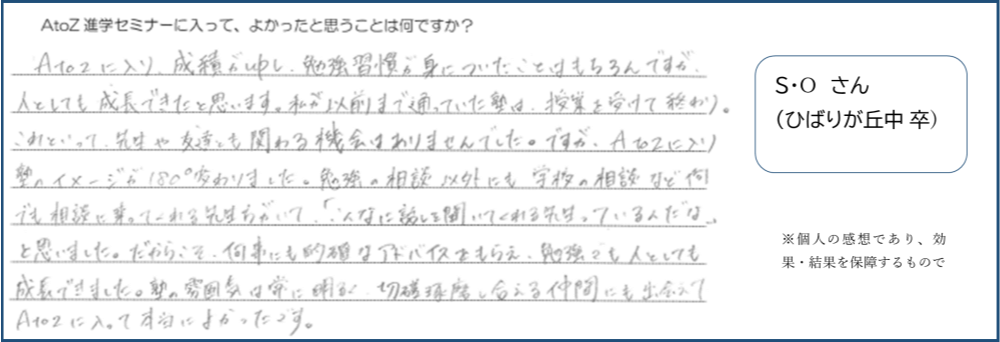 AtoZ 進学セミナーに入って、よかったと思うことは何ですか？
AtoZに入り、成績がupし、勉強習慣が身についたことはもちろんですが、
人としても成長できたと思います。私が以前まで通っていた塾は、授業を受けて終わり。
これといって、先生や友達とも関わる機会はありませんでした。ですが、AtoZに入り
塾のイメージが180°変わりました。勉強の相談以外にも学校の相談など何
でも相談に乗ってくれる先生方がいて、「こんなに話しを聞いてくれる先生っているんだな」
と思いました。だからこそ、何事にも的確なアドバイスをもらえ、勉強でも人としても
成長できました。塾の雰囲気は常に明るく、切磋琢磨し合える仲間にも出会えて
AtoZに入って本当によかったです。
S・O さん
（ひばりが丘中 卒）
※個人の感想であり、効
果・結果を保障するもので